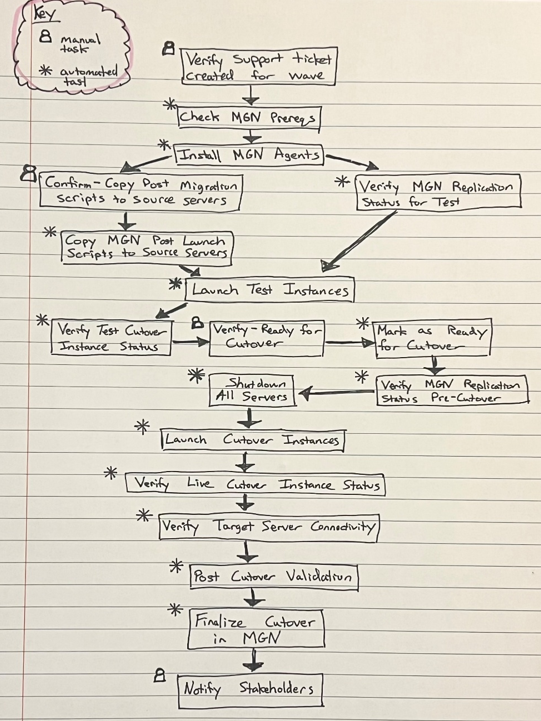 Key
manual
task
* automated
tast
Verify Support ticket
created for wave
* Check MGN Prereqs
* Install MGN Agents
Confirm-Copy Post Migration
Scripts to Source servers
* Verify MGN Replication
Status for Test
* Copy MGN Post Launch
Scripts to Source Servers
* Launch Test Instances
* Verify Test Cutover
Instance Status
Verify-Ready for
Cutover
* Mark as Ready
for Cutover
* Verify MGN Replication
Status Pre-Cutover
* Shutdown
All Servers
* Launch Cutover Instances
* Verify Live Cutover Instance Status
* Verify Target Server Connectivity
* Post Cutover Validation
* Finalize Cutover
in MGN
Notify Stakeholders